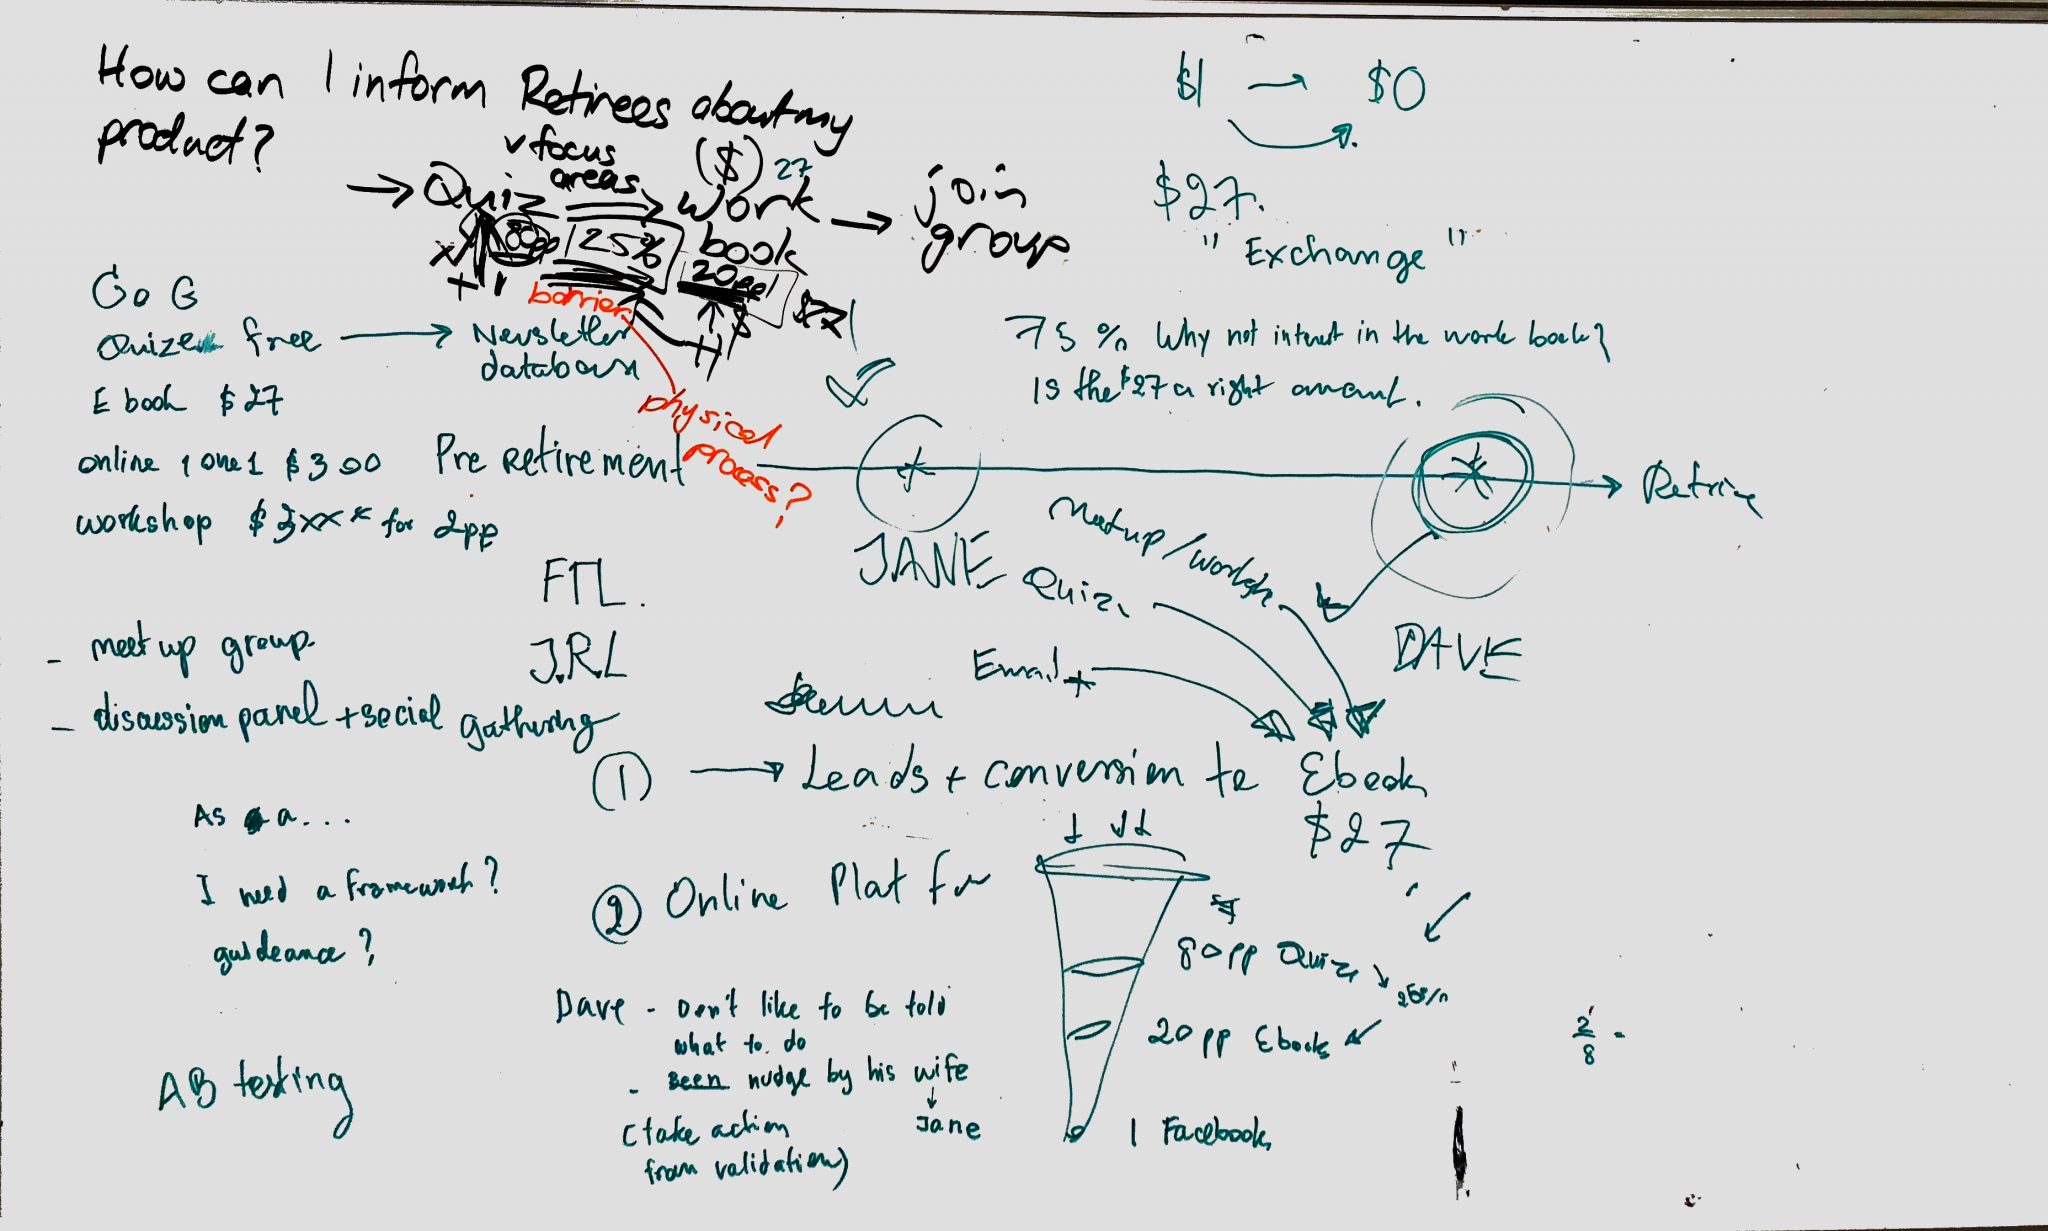 How can I inform Retirees about my
product?
v focus
areas
($) 27
→ Quiz → work
book → join
group
80pp 25%
20ppl
$
barrier
physical
process?
$1 → $0
$27.
" Exchange "
75 % Why not interest in the work book?
Is the $27 a right amount.
GoG
Quize free → Newsletter
database
E book $27
online 1 one 1 $300
workshop $3xxx for 2pp
Pre Retirement
JANE
DAVE
Meetup/worksh
Quiz
Email
FTL.
J.R.L
- meet up group.
- discussion panel + social gathering
① → Leads + conversion to Ebook
$27
As a ...
I need a framework?
guideance?
② Online Plat for
80pp Quiz
25%
20pp Ebook
1 Facebook
2/8 =
Dave - Don't like to be told
what to do
- Been nudge by his wife
↓
Jane
(take action
from validation)
AB testing